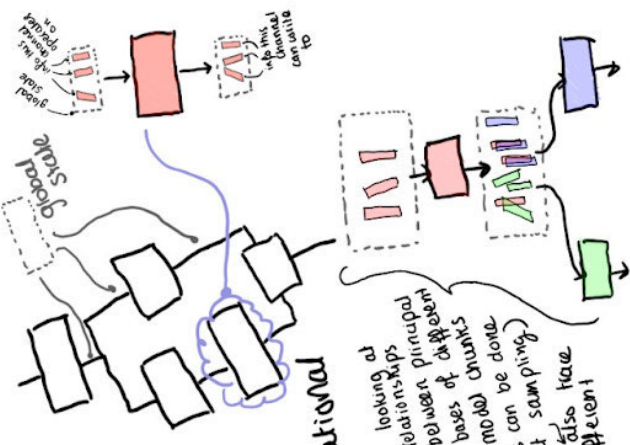 global
state
info this
channel
operates
on
info this
channel
can write
to
global
state
ational
looking at
relationships
between principal
bases of different
model chunks
can be done
sampling)
also trace
fferent